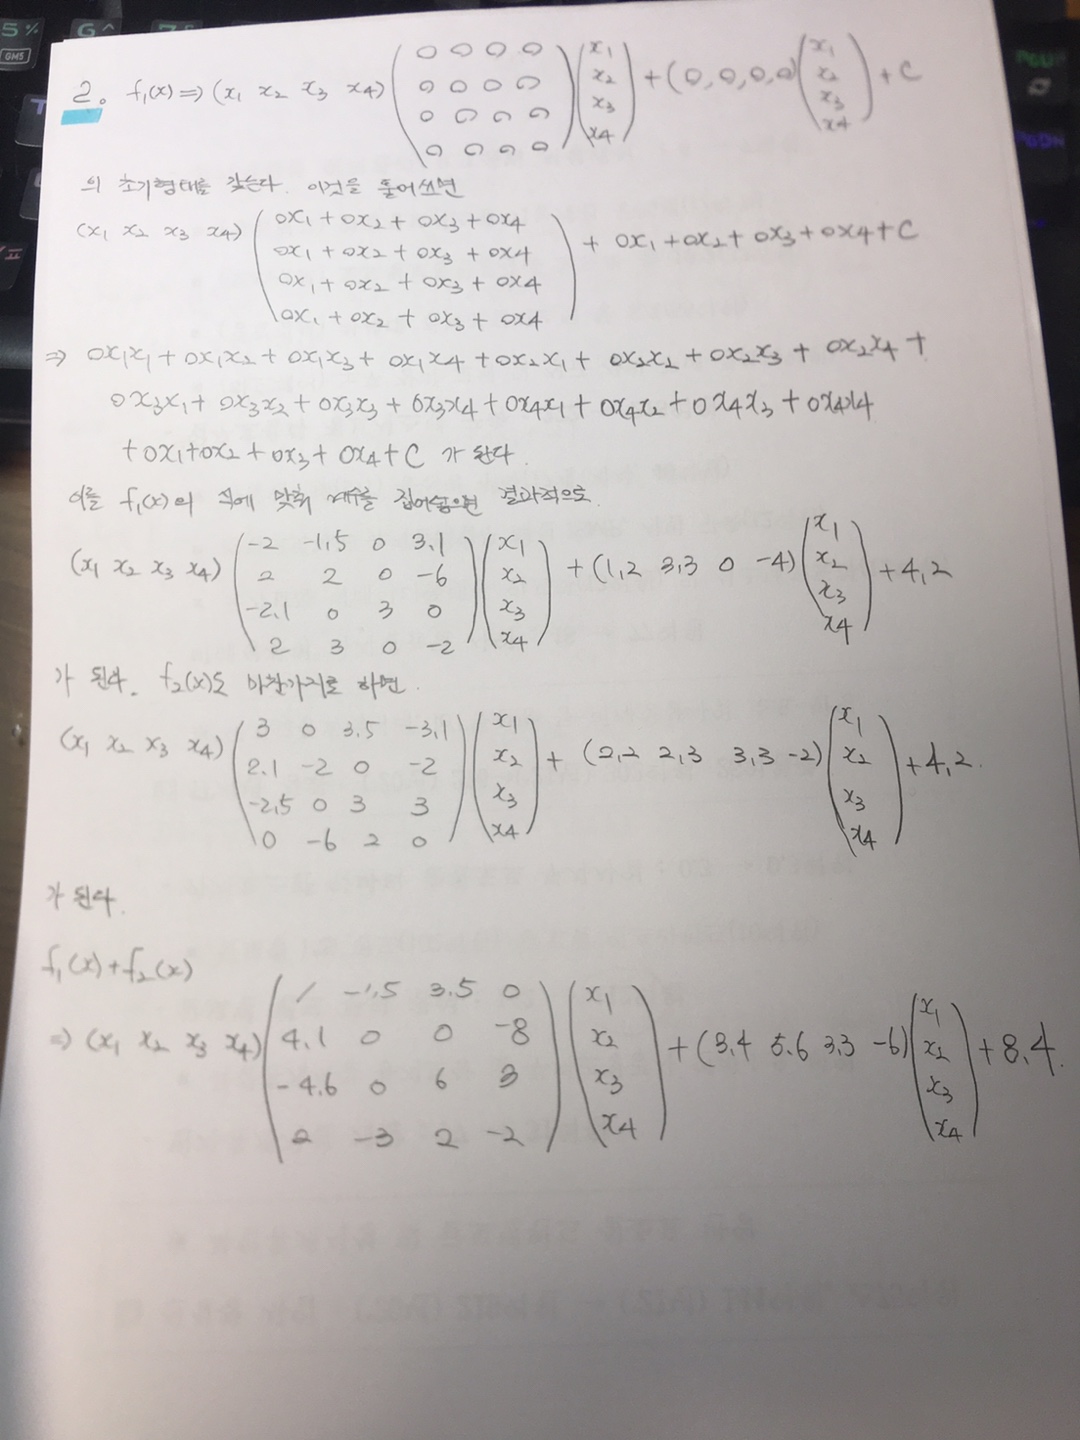 2. f₁(x) ⇒ (x₁ x₂ x₃ x₄) (0 0 0 0 / 0 0 0 0 / 0 0 0 0 / 0 0 0 0) (x₁ x₂ x₃ x₄) + (0, 0, 0, 0) (x₁ x₂ x₃ x₄) + C
의 초기형태를 갖는다. 이것을 풀어쓰면
(x₁ x₂ x₃ x₄) (0x₁ + 0x₂ + 0x₃ + 0x4 / 0x₁ + 0x2 + 0x₃ + 0x4 / 0x₁ + 0x₂ + 0x₃ + 0x4 / 0x₁ + 0x₂ + 0x₃ + 0x4) + 0x₁ + 0x₂ + 0x₃ + 0x4 + C
⇒ 0x₁x₁ + 0x₁x₂ + 0x₁x₃ + 0x₁x4 + 0x₂x₁ + 0x₂x₂ + 0x₂x₃ + 0x₂x4 +
0x₃x₁ + 0x₃x₂ + 0x₃x₃ + 0x₃x4 + 0x4x₁ + 0x4x₂ + 0x4x₃ + 0x4x4
+ 0x₁ + 0x₂ + 0x₃ + 0x4 + C 가 된다.
이를 f₁(x)의 식에 맞춰 계수를 집어넣으면 결과적으로
(x₁ x₂ x₃ x₄) (-2 -1.5 0 3.1 / 2 2 0 -6 / -2.1 0 3 0 / 2 3 0 -2) (x₁ x₂ x₃ x4) + (1,2 3,3 0 -4) (x₁ x₂ x₃ x4) + 4,2
가 된다. f₂(x)도 마찬가지로 하면.
(x₁ x₂ x₃ x₄) (3 0 3.5 -3.1 / 2.1 -2 0 -2 / -2.5 0 3 3 / 0 -6 2 0) (x₁ x₂ x₃ x4) + (2,2 2,3 3,3 -2) (x₁ x₂ x₃ x4) + 4,2.
가 된다.
f₁(x)+f₂(x)
⇒ (x₁ x₂ x₃ x4) (1 -1.5 3.5 0 / 4.1 0 0 -8 / -4.6 0 6 3 / 2 -3 2 -2) (x₁ x₂ x₃ x4) + (3.4 5.6 3.3 -6) (x₁ x₂ x₃ x4) + 8.4.